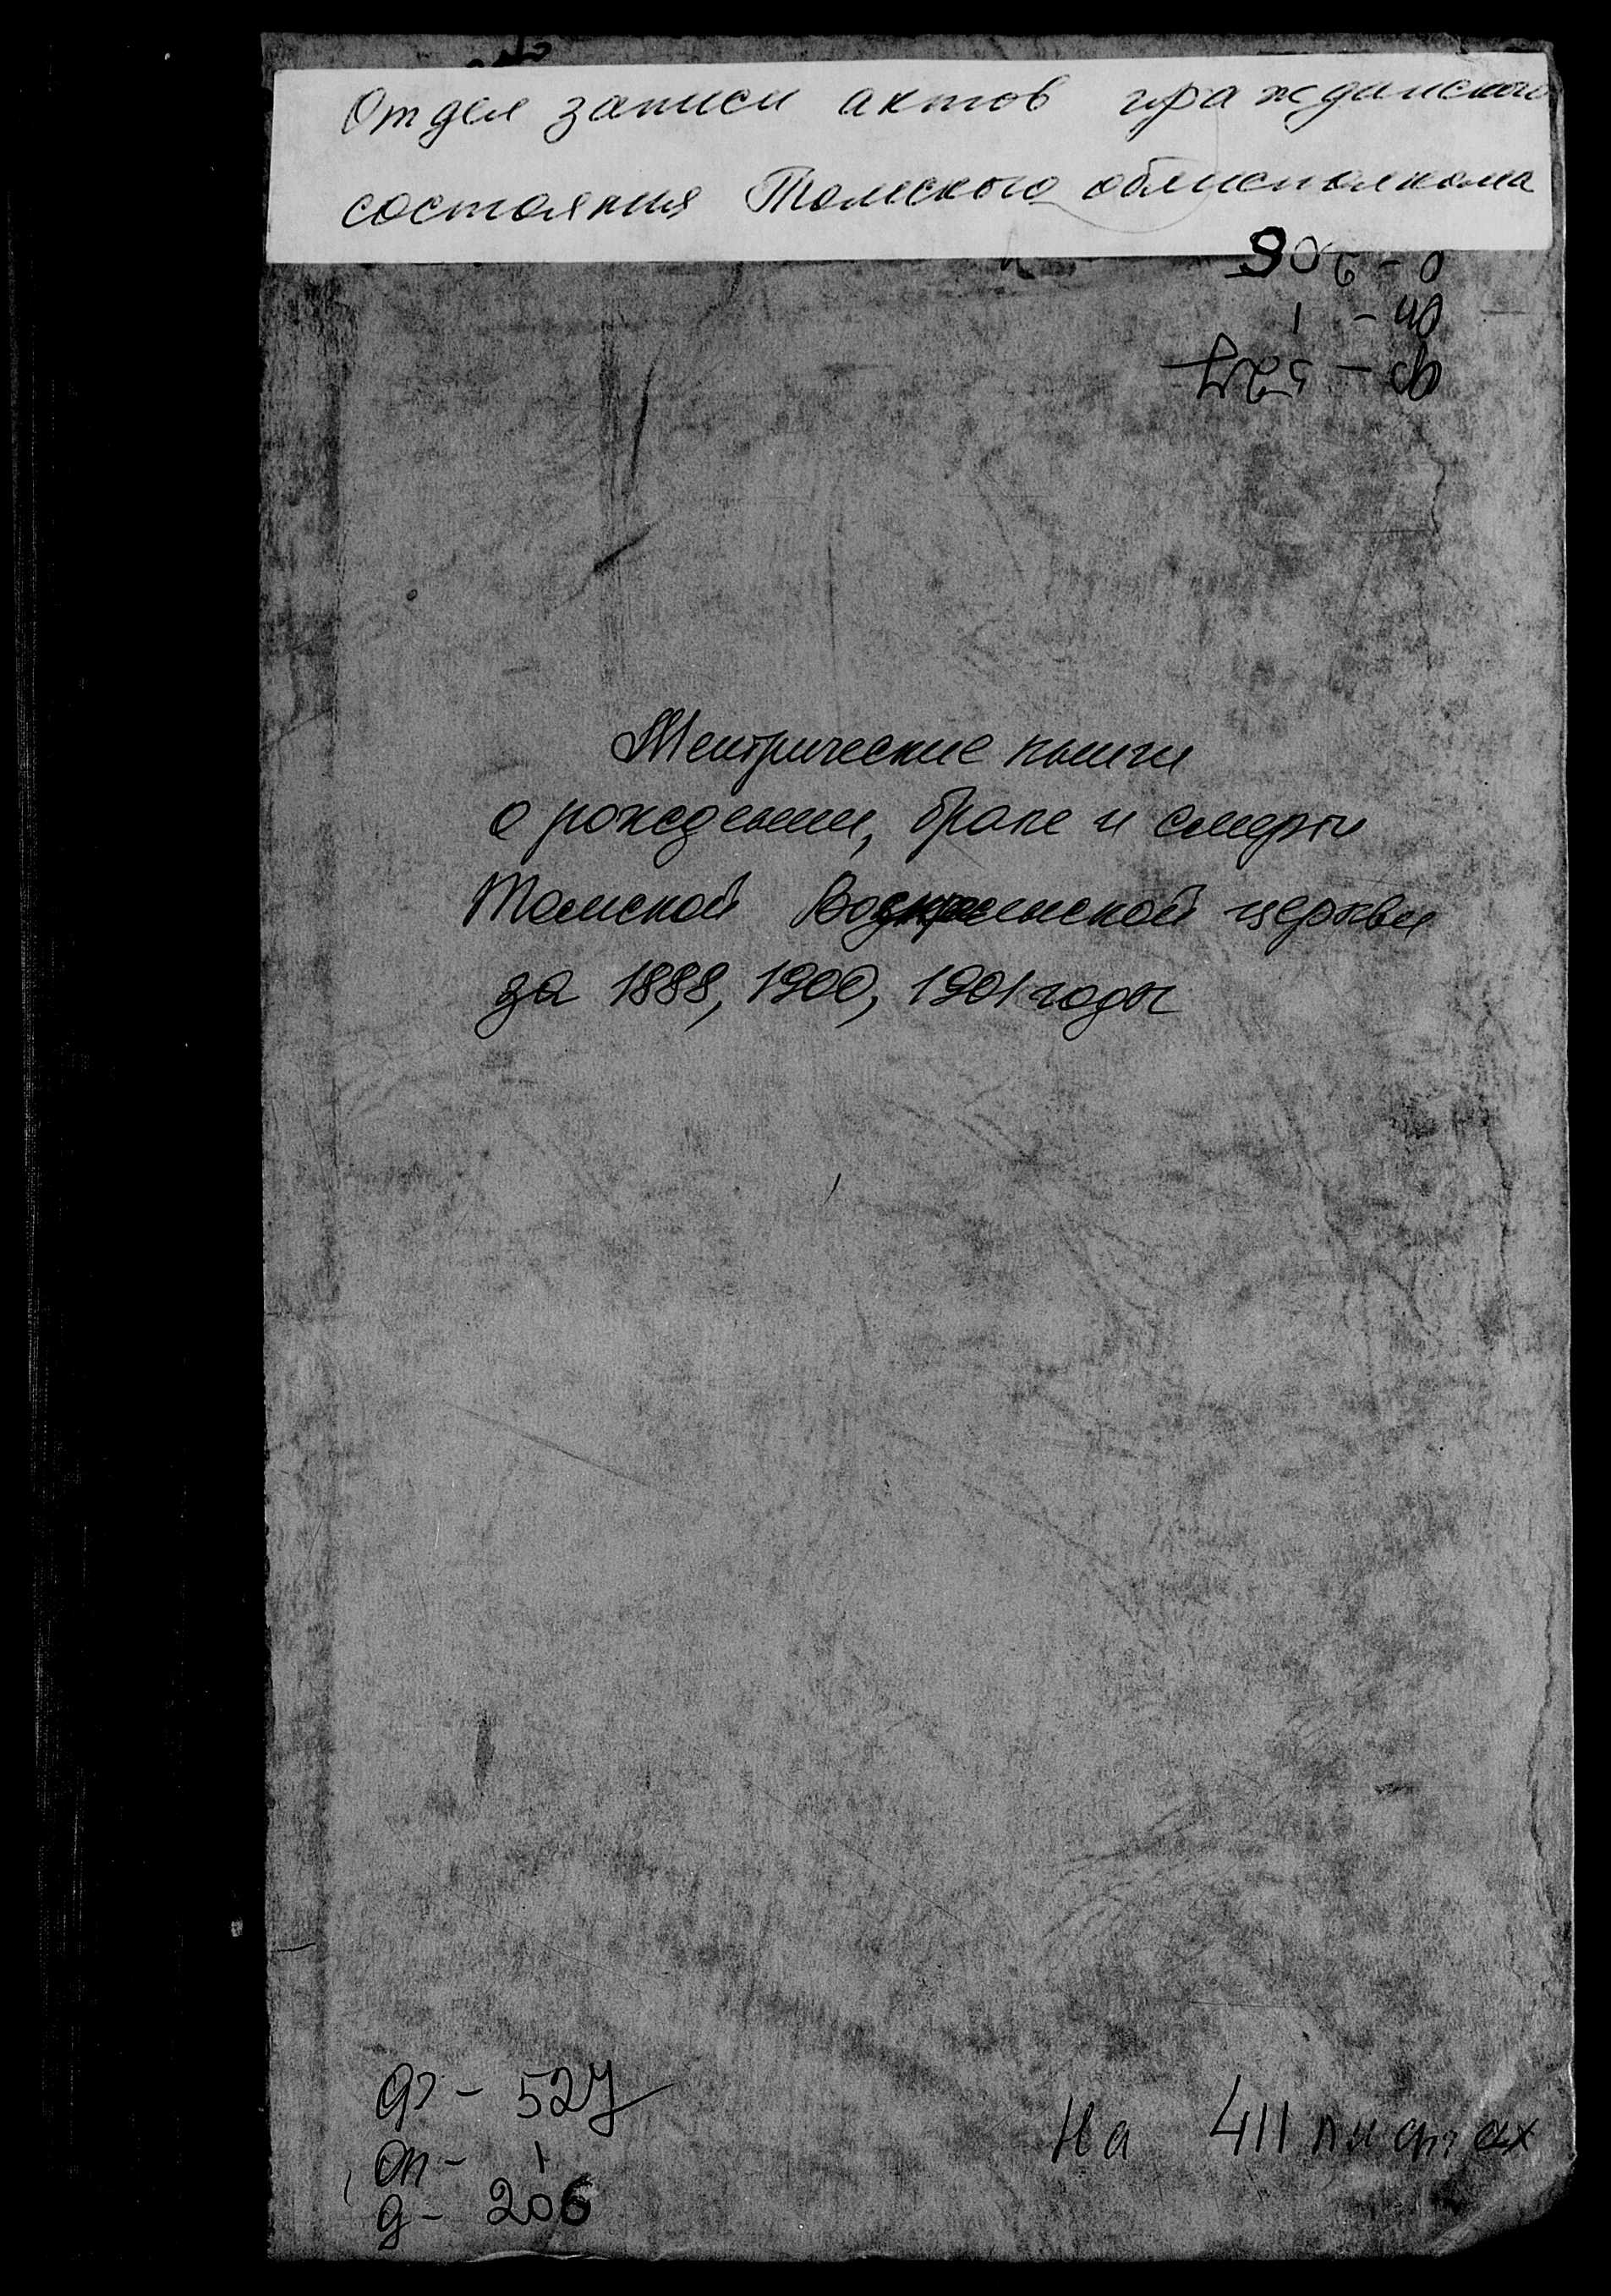 Отдел записи актов гражданского
состояния Томского облисполкома
д - 206
оп - 1
ф - 527
Метрические книги
о рождении, браке и смерти
Томской Воскресенской церкви
за 1888, 1900, 1901 годы
ф - 527
оп - 1
д - 206
На 411 листах